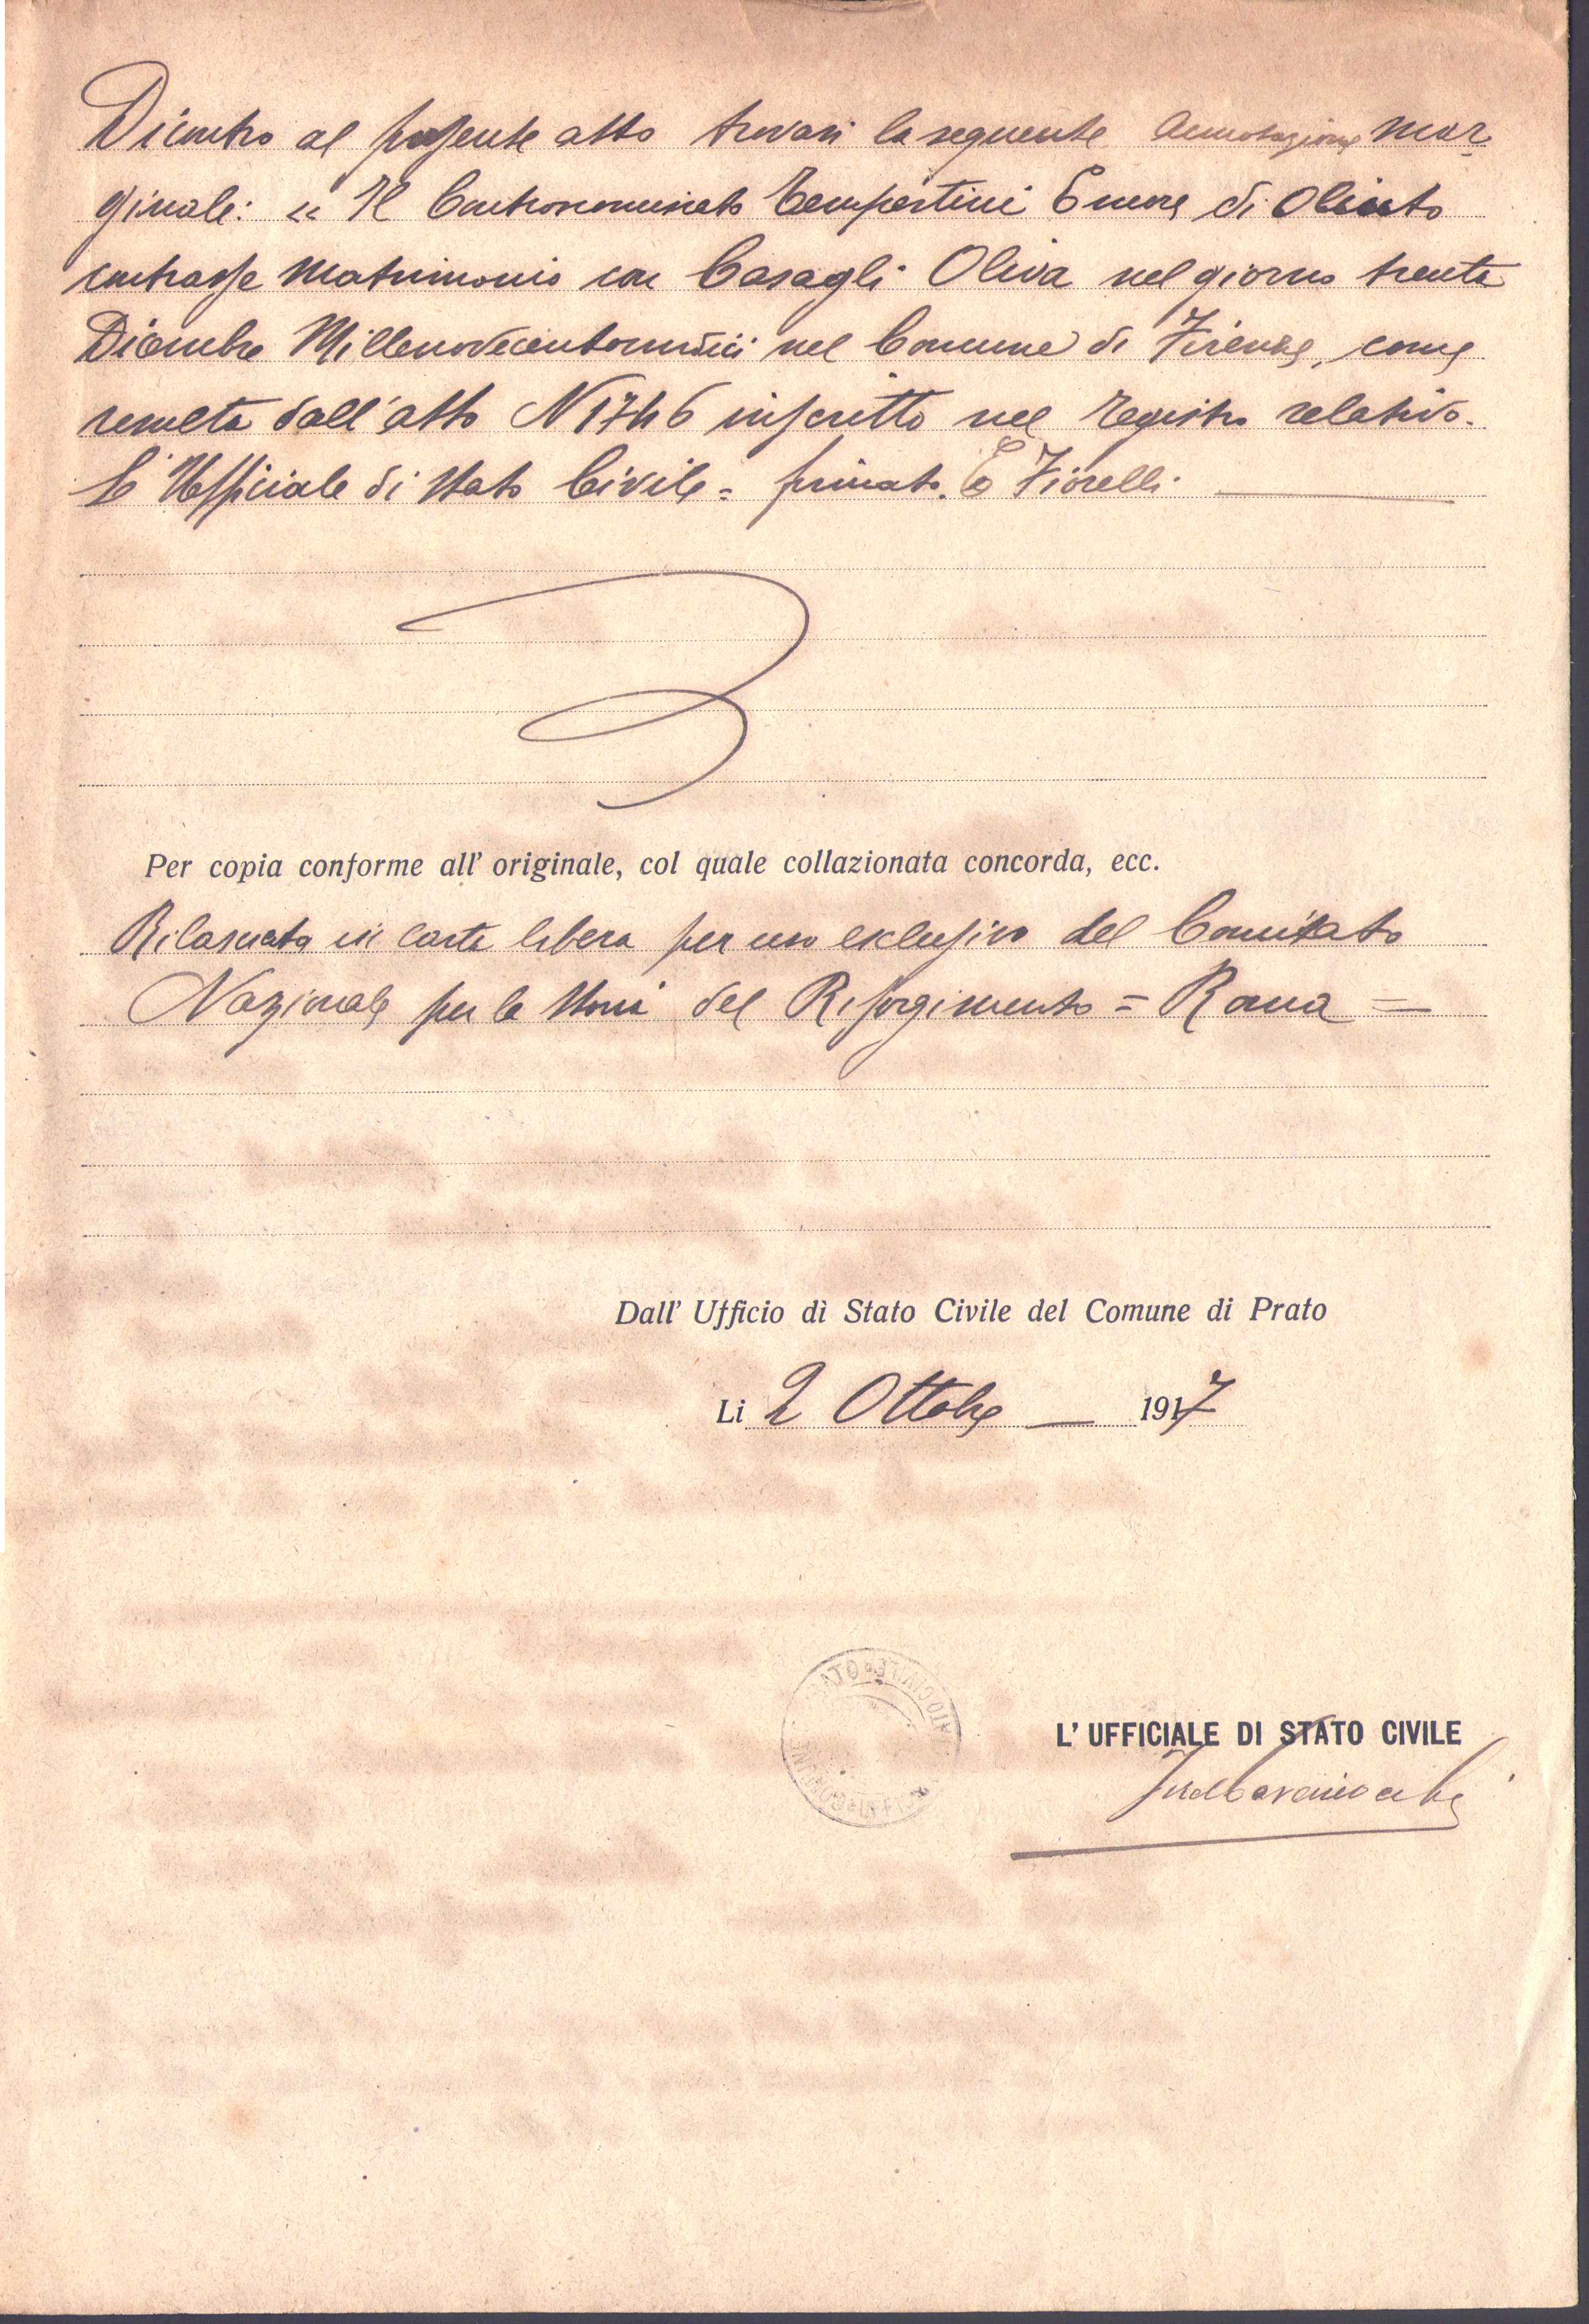 Dicontro al presente atto trovasi la seguente annotazione mar
ginale: « Il Contronominato Tempestini Ennore di Olinto
contrasse matrimonio con Casagli Oliva nel giorno trenta
Dicembre Millenovecentoundici nel Comune di Firenze, come
resulta dall'atto N 1746 inscritto nel registro relativo.
L'Ufficiale di Stato Civile = firmato. E Fiorelli.
Per copia conforme all' originale, col quale collazionata concorda, ecc.
Rilasciata in carta libera per uso esclusivo del Comitato
Nazionale per la Storia del Risorgimento = Roma =
Dall' Ufficio di Stato Civile del Comune di Prato
Li 2 Ottobre 1917
L' UFFICIALE DI STATO CIVILE